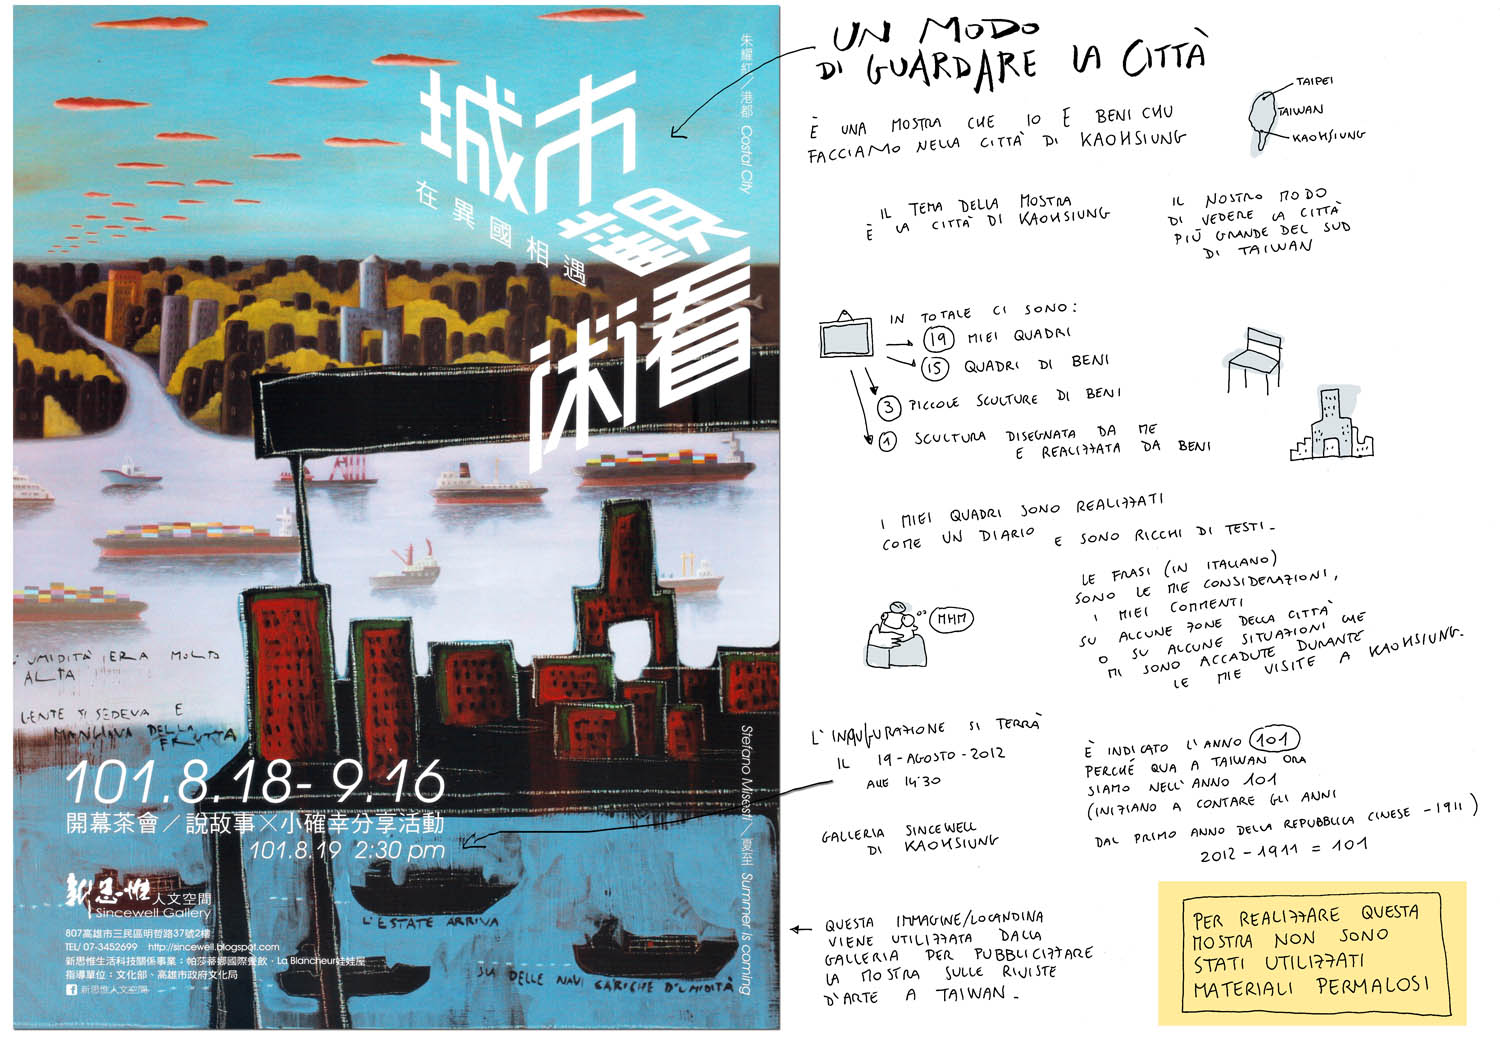 朱耀紅／港都 Costal City
城市
對
術看
在異國相遇
L'UMIDITÀ ERA MOLTO
ALTA
GENTE SI SEDEVA E
MANGIAVA DELLA
FRUTTA
101.8.18-9.16
開幕茶會／說故事×小確幸分享活動
101.8.19 2:30 pm
Stefano Misesti／夏至 Summer is coming
新思惟人文空間
Sincewell Gallery
807高雄市三民區明哲路37號2樓
TEL/ 07-3452699 http://sincewell.blogspot.com
新思惟生活科技關係事業：帕莎蒂娜國際餐飲、La Blancheur娃娃屋
指導單位：文化部、高雄市政府文化局
新思惟人文空間
L'ESTATE ARRIVA
SU DELLE NAVI CARICHE D'UMIDITÀ
UN MODO
DI GUARDARE LA CITTÀ
È UNA MOSTRA CHE IO E BENI CHU
FACCIAMO NELLA CITTÀ DI KAOHSIUNG
TAIPEI
TAIWAN
KAOHSIUNG
IL TEMA DELLA MOSTRA
È LA CITTÀ DI KAOHSIUNG
IL NOSTRO MODO
DI VEDERE LA CITTÀ
PIÙ GRANDE DEL SUD
DI TAIWAN
IN TOTALE CI SONO:
19 MIEI QUADRI
15 QUADRI DI BENI
3 PICCOLE SCULTURE DI BENI
1 SCULTURA DISEGNATA DA ME
E REALIZZATA DA BENI
I MIEI QUADRI SONO REALIZZATI
COME UN DIARIO E SONO RICCHI DI TESTI.
LE FRASI (IN ITALIANO)
SONO LE MIE CONSIDERAZIONI,
I MIEI COMMENTI
SU ALCUNE ZONE DELLA CITTÀ
O SU ALCUNE SITUAZIONI CHE
MI SONO ACCADUTE DURANTE
LE MIE VISITE A KAOHSIUNG.
MHM
L'INAUGURAZIONE SI TERRÀ
IL 19-AGOSTO-2012
ALLE 14:30
GALLERIA SINCEWELL
DI KAOHSIUNG
È INDICATO L'ANNO 101
PERCHÉ QUA A TAIWAN ORA
SIAMO NELL'ANNO 101
(INIZIANO A CONTARE GLI ANNI
DAL PRIMO ANNO DELLA REPUBBLICA CINESE - 1911)
2012 - 1911 = 101
QUESTA IMMAGINE/LOCANDINA
VIENE UTILIZZATA DALLA
GALLERIA PER PUBBLICIZZARE
LA MOSTRA SULLE RIVISTE
D'ARTE A TAIWAN.
PER REALIZZARE QUESTA
MOSTRA NON SONO
STATI UTILIZZATI
MATERIALI PERMALOSI